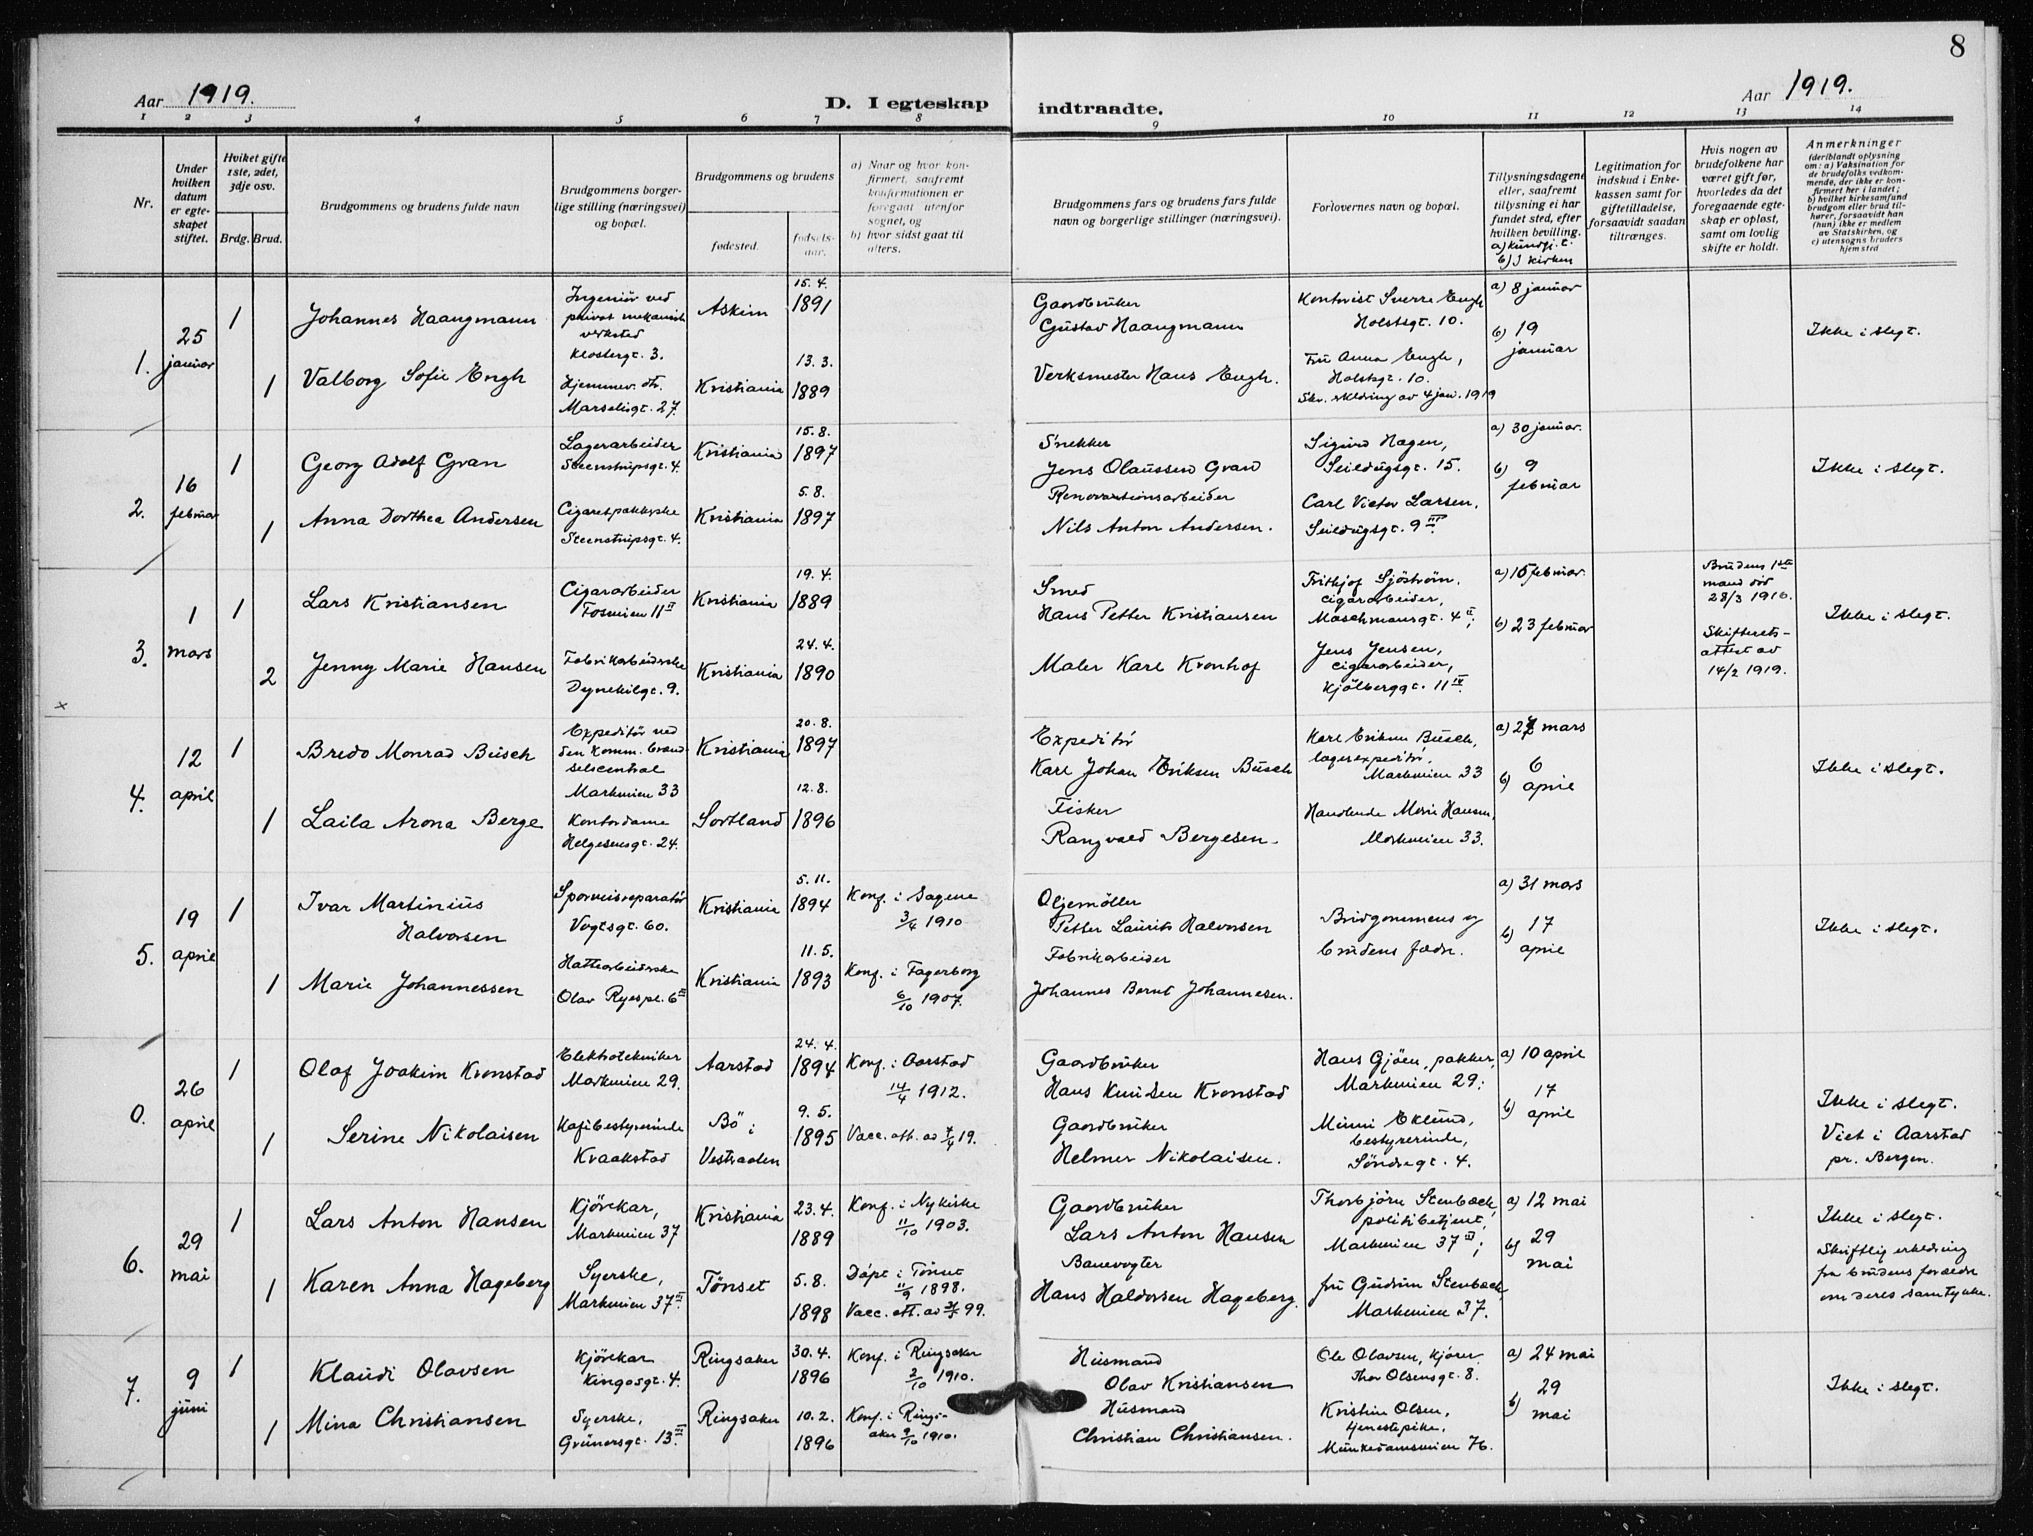 8
Aar 1919.
D. I egteskap
indtraadte.
Aar 1919.
1 2 3 4 5 6 7 8 9 10 11 12 13 14
Nr.
Under
hvilken
datum
er egte-
skapet
stiftet.
Hviket gifte
1ste, 2det,
3dje osv.
Brdg. Brud.
Brudgommens og brudens fulde navn
Brudgommens borger-
lige stilling (næringsvei)
og bopæl.
Brudgommens og brudens
fødested.
fødsels-
aar.
a) Naar og hvor kon-
firmert, saafremt
konfirmationen er
foregaat utenfor
sognet, og
b) hvor sidst gaat til
alters.
Brudgommens fars og brudens fars fulde
navn og borgerlige stillinger (næringsvei).
Forlovernes navn og bopæl.
Tillysningsdagene
eller, saafremt
tillysning ei har
fundet sted, efter
hvilken bevilling.
a) kundgj. t.
b) I kirken
Legitimation for
indskud i Enke-
kassen samt for
giftetilladelse,
forsaavidt saadan
tiltrænges.
Hvis nogen av
brudefolkene har
været gift før,
hvorledes da det
foregaaende egte-
skap er opløst,
samt om lovlig
skifte er holdt.
Anmerkninger
(deriblandt oplysning
om: a) Vaksination for
de brudefolks vedkom-
mende, der ikke er kon-
firmert her i landet;
b) hvilket kirkesamfund
brudgom eller brud til-
hører, forsaavidt han
(hun) ikke er medlem
av Statskirken, og
c) utensogns bruders
hjemsted
1.
25
januar
1
Johannes Haangmann
Ingeniør ved
privat mekanisk
verksted
Klostergt. 3.
Askim
15.4.
1891
Gaardbruker
Gustav Haangmann
Kontorist Sverre Engh
Holstsgt. 10.
a) 8 januar
b) 19
januar
Ikke i slegt.
1
Valborg Sofie Engh
Hjemmev. dtr.
Marselisgt. 27.
Kristiania
13.3.
1889
Verksmester Hans Engh.
Fru Anna Engh,
Holstsgt. 10.
Skr. erklæring av 4 jan. 1919
2.
16
februar
1
Georg Adolf Gran
Lagerarbeider
Steenstrupsgt. 4.
Kristiania
15.8.
1897
Snekker
Jens Olaussen Gran
Sigurd Hagen,
Seildugsgt. 15.
a) 30 januar.
b) 9
februar
Ikke i slegt.
1
Anna Dorthea Andersen
Cigaretpakkerske
Steenstrupsgt. 4.
Kristiania
5.8.
1897
Renovationsarbeider
Nils Anton Andersen.
Carl Victor Larsen,
Seildugsgt. 9 III.
3.
1
mars
1
Lars Kristiansen
Cigararbeider
Fosveien 11 II
Kristiania
19.4.
1889
Smed
Hans Petter Kristiansen
Frithjof Sjöström,
cigararbeider,
Maschmansgt. 4 II;
a) 15 februar.
b) 23 februar
Brudens 1ste
mand död
28/3 1916.
Skifterets-
attest av
14/2 1919.
Ikke i slegt.
2
Jenny Marie Hansen
Fabrikarbeiderske
Dynekilgt. 9.
Kristiania
24.4.
1890
Maler Karl Kronhof
Jens Jensen,
cigararbeider,
Kjölberggt. 11 IV.
x
4.
12
april
1
Bredo Monrad Busch
Expeditör ved
den komm. brænd-
selscentral
Markveien 33
Kristiania
20.8.
1897
Expeditör
Karl Johan Eriksen Busch
Karl Eriksen Busch,
lagerexpeditör,
Markveien 33
a) 27 mars
b) 6
april
Ikke i slegt.
1
Laila Arona Berge
Kontordame
Helgesensgt. 24.
Sortland
12.8.
1896
Fisker
Rangvald Bergesen.
Handlende Marie Hansen,
Markveien 33.
5.
19
april
1
Ivar Martinius
Halvorsen
Sporveisreparatör
Vogtsgt. 60.
Kristiania
5.11.
1894
Konf. i Sagene
3/4 1910
Oljemöller
Petter Laurits Halvorsen
Brudgommens og
brudens fædre.
a) 31 mars
b) 17
april
Ikke i slegt.
1
Marie Johannessen
Hattearbeiderske
Olav Ryespl. 6 III
Kristiania
11.5.
1893
Konf. i Fagerborg
6/10 1907.
Fabrikarbeider
Johannes Bernt Johannesen.
0.
26
april
1
Olaf Joakim Kronstad
Elektrotekniker
Markveien 29.
Aarstad
24.4.
1894
Konf. i Aarstad
14/4 1912.
Gaardbruker
Hans Knudsen Kronstad
Hans Gjöen, pakker,
Markveien 29;
a) 10 april
b) 17
april
Ikke i slegt.
Viet i Aarstad
pr. Bergen.
1
Serine Nikolaisen
Kafébestyrerinde
Kraakstad
Bö i
Vesteraalen
9.5.
1895
Vacc. att. av 7/4 19.
Gaardbruker
Helmer Nikolaisen.
Minni Eklund,
bestyrerinde,
Söndregt. 4.
6.
29
mai
1
Lars Anton Hansen
Kjörekar,
Markveien 37
Kristiania
23.4.
1889
Konf. i Nykirke
11/10 1903.
Gaardbruker
Lars Anton Hansen
Thorbjörn Stenbæck,
politibetjent,
Markveien 37 III;
a) 12 mai
b) 29
mai
Ikke i slegt.
Skriftlig erklæring
fra brudens forældre
om deres samtykke.
1
Karen Anna Hageberg
Syerske,
Markveien 37 III.
Tönset
5.8.
1898
Döpt i Tönset
11/9 1898.
Banevogter
Hans Haldorsen Hageberg.
fru Gudrun Stenbæck,
Markveien 37.
7.
9
juni
1
Klaudi Olavsen
Kjörekar
Kingosgt. 4.
Ringsaker
30.4.
1896
Konf. i Ringsaker
2/10 1910.
Husmand
Olav Kristiansen
Ole Olavsen, kjörer,
Thor Olsensgt. 8.
a) 24 mai
b) 29
mai
Ikke i slegt.
1
Mina Christiansen
Syerske,
Grünersgt. 13 III.
Ringsaker
10.2.
1896
Konf. i Rings-
aker 9/10 1910.
Husmand
Christian Christiansen.
Kristine Olsen,
tjenestepike,
Munkedamsveien 76.